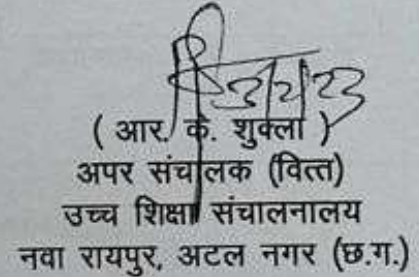 ( आर. के. शुक्ला )
अपर संचालक (वित्त)
उच्च शिक्षा संचालनालय
नवा रायपुर, अटल नगर (छ.ग.)